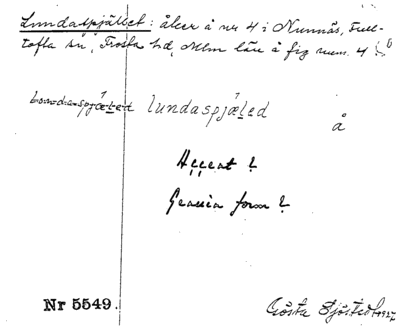 Lundaspjället: åker å nr 4 i Nunnäs, Full-
tofta sn, Frosta hd, Mlm län å fig num. 4
lundaspjæled lundaspjæled
å
Accent?
Genuin form?
Nr 5549.
Gösta Sjöstedt 1927